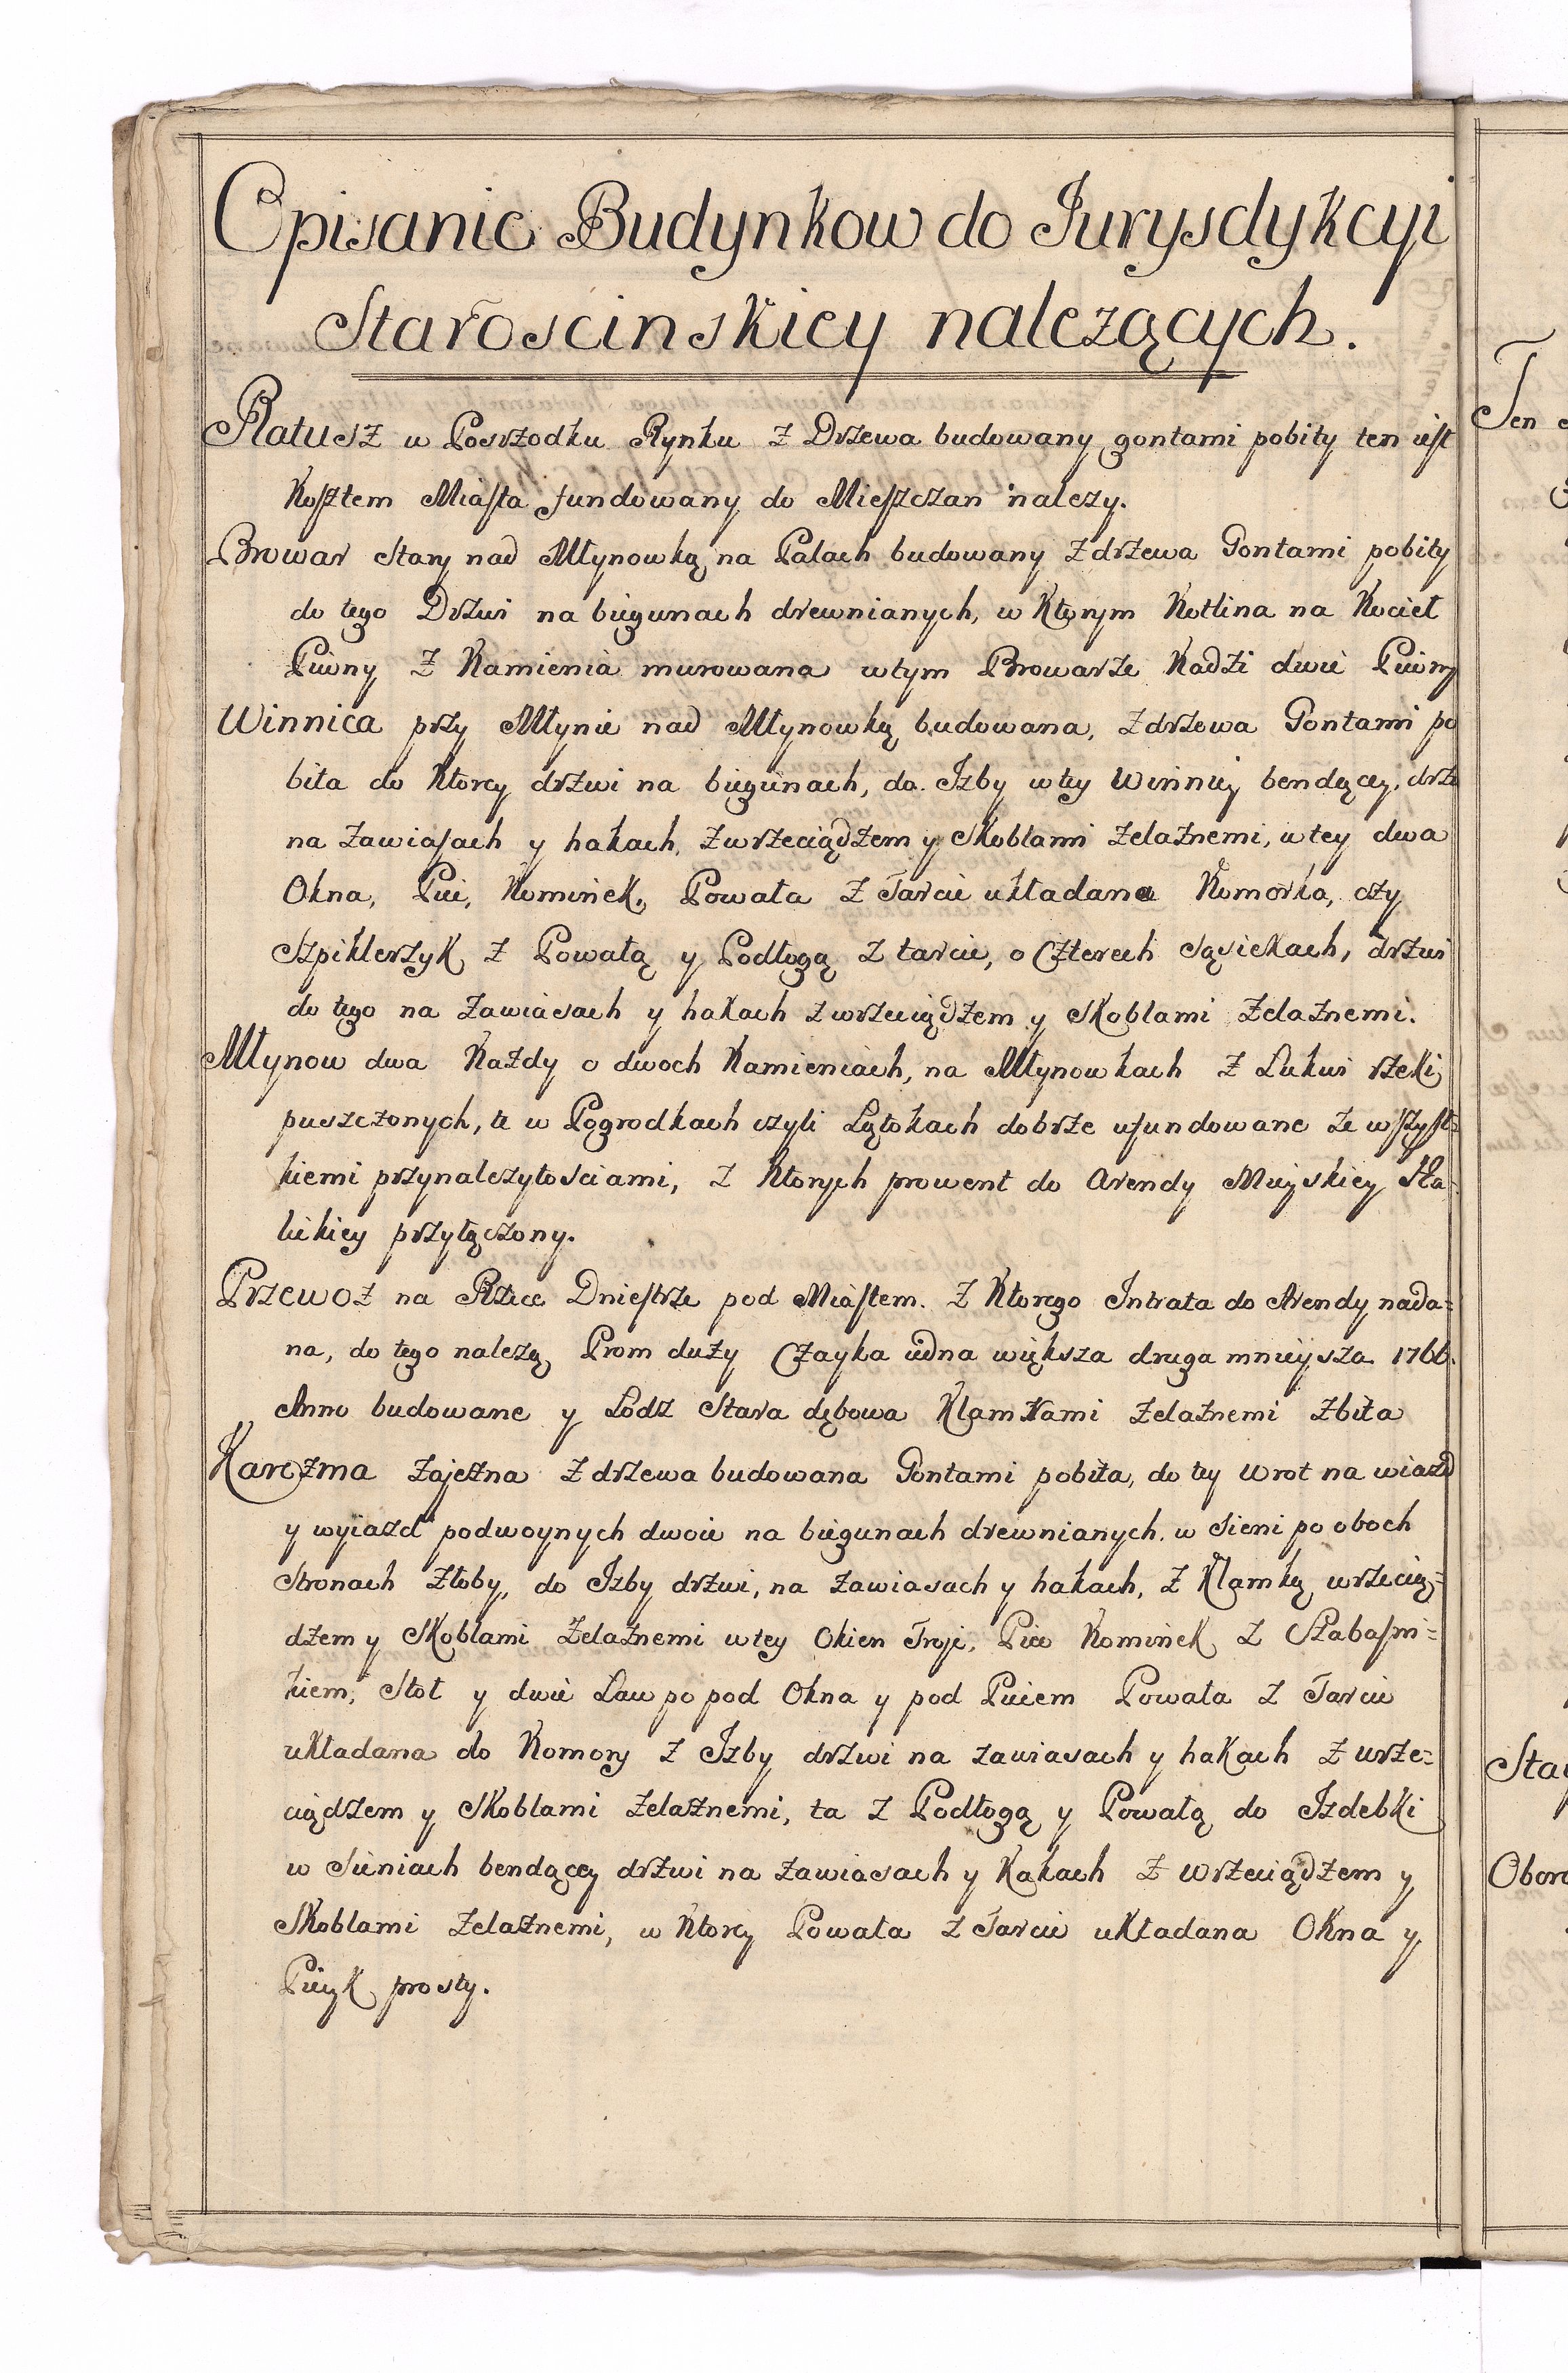 Opisanie Budynkow do Jurysdykcyi
Starościnskiey należących.
Ratusz w Posrzodku Rynku z Drzewa budowany gontami pobity ten iest
Kosztem Miasta fundowany do Mieszczan nalezy.
Browar Stary nad Młynowką na Palach budowany z drzewa Gontami pobity
do tego Drzwi na biegunach drewnianych, w Ktorym Kotlina na Kocieł
Piwny z Kamienia murowana w tym Browarze Kadzi dwie Piwny
Winnica przy Młynie nad Młynowką budowana, z drzewa Gontami po
bita do Ktorey drzwi na biegunach, do Izby w tey Winnicy bendącey, drzwi
na zawiasach y hakach, z wrzeciądzem y Skoblami żelaznemi, w tey dwa
Okna, Piec, Kominek, Powała z Tarcic układana Komorka, czy
Szpiklerzyk z Powałą y Podłogą z tarcic, o Czterech sąsiekach, drzwi
do tego na zawiasach y hakach z wrzeciądzem y Skoblami żelaznemi.
Młynow dwa Każdy o dwoch Kamieniach, na Młynowkach z Lukwi rzeki
puszczonych, te w Pogrodkach czyli Lętokach dobrze ufundowane ze wszyst=
kiemi przynalezytosciami, z Ktorych prowent do Arendy Mieyskiey Ha=
lickiey przyłączony.
Przewoz na Rzece Dniestrze pod Miastem. z Ktorego Intrata do Arendy nada=
na, do tego nalezą Prom duży Czayka iedna większa druga mnieysza 1766.
Anno budowane y Łodz Stara dębowa Klamkami żelaznemi zbita
Karczma zajezna z drzewa budowana Gontami pobita, do tey Wrot na wiazd
y wyiazd podwoynych dwoie na biegunach drewnianych. w Sieni po oboch
Stronach Złoby, do Izby drzwi, na zawiasach y hakach, z Klamką wrzecią=
dzem y Skoblami żelaznemi w tey Okien Troje, Piec Kominek z Szabasni=
kiem, Stoł y dwie Law po pod Okna y pod Piecem Powała z Tarcic
układana do Komory z Izby drzwi na zawiasach y hakach z wrze=
ciądzem y Skoblami żelaznemi, ta z Podłogą y Powałą do Izdebki
w Sieniach bendącey drzwi na zawiasach y Kakach z Wrzeciądzem y
Skoblami żelaznemi, w Ktorey Powała z Tarcic układana Okna y
Piecyk prosty.
Ten
Sta
Obor